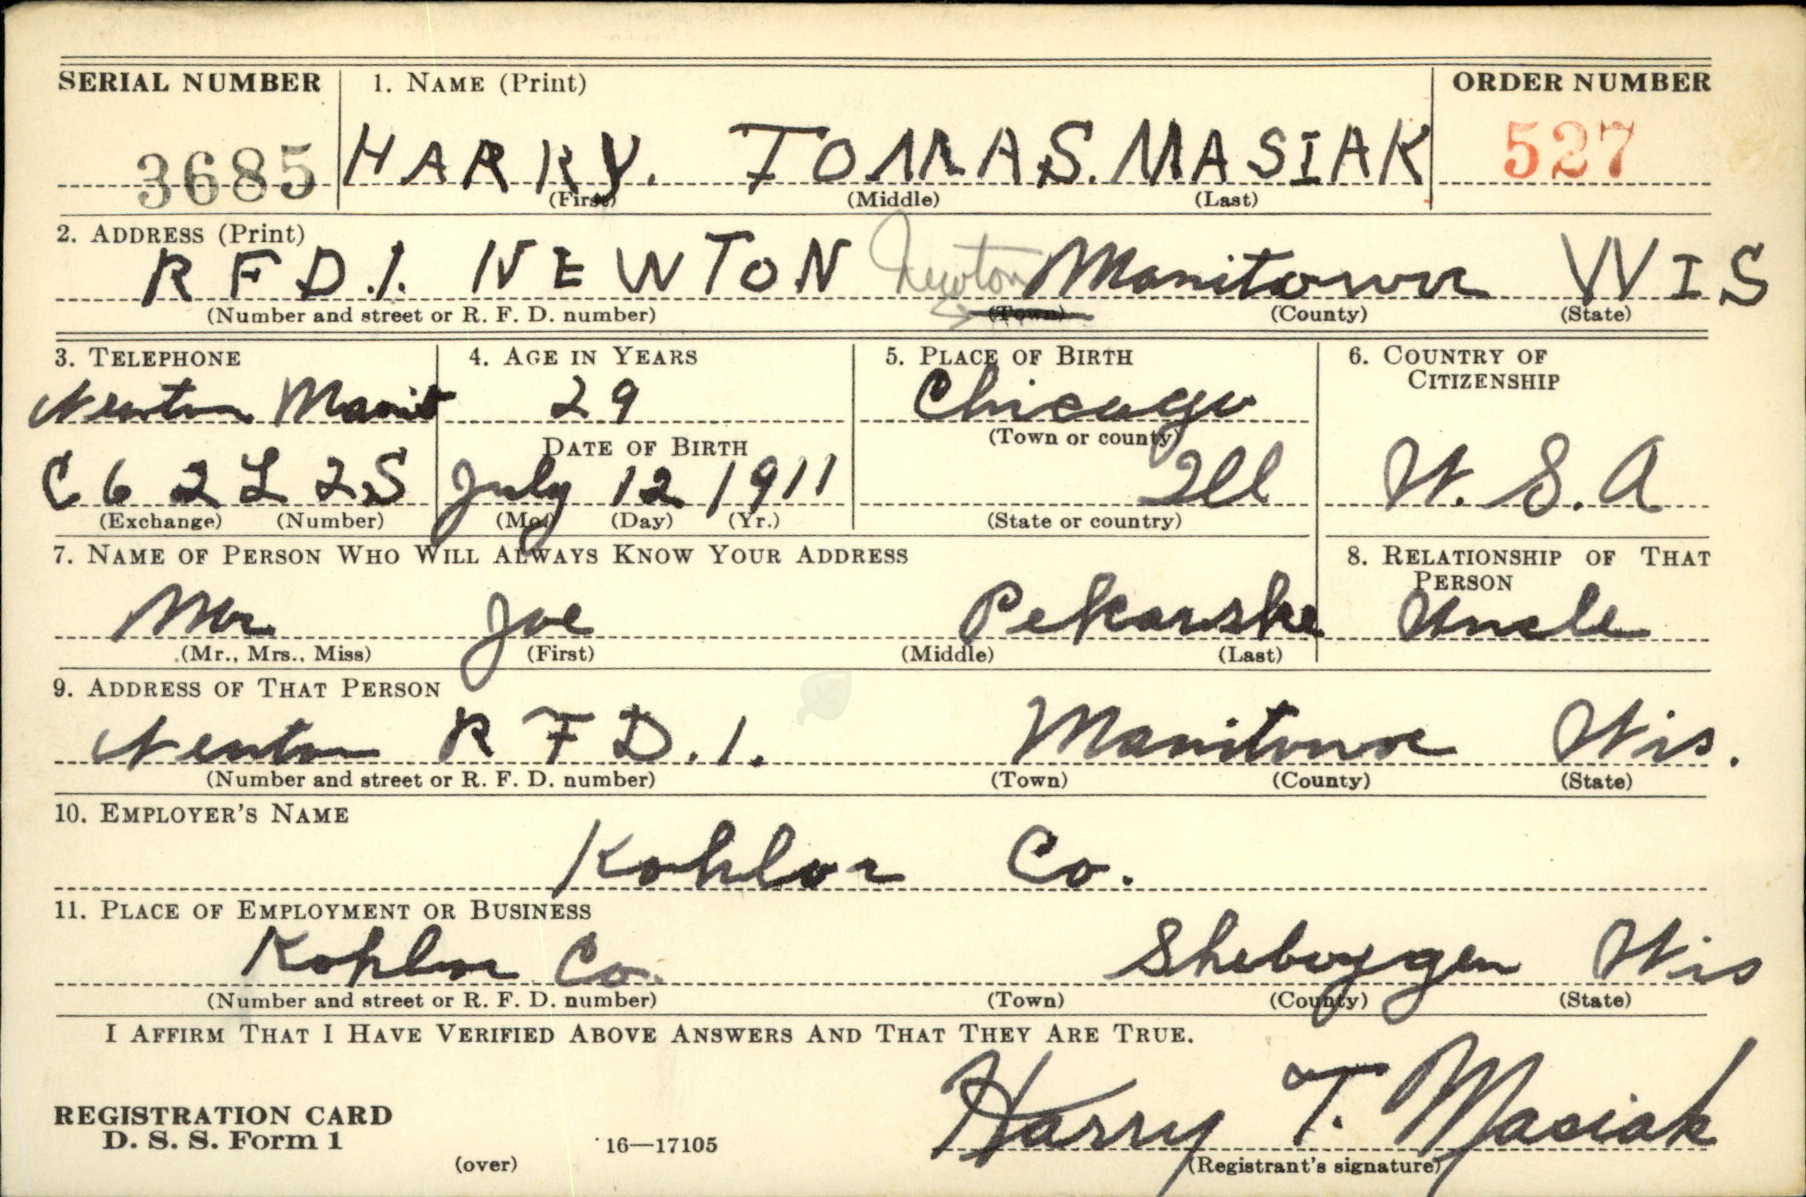 SERIAL NUMBER
1. NAME (Print)
ORDER NUMBER
3685 HARRY. TOMAS. MASIAK 527
(First) (Middle) (Last)
2. ADDRESS (Print)
R F D. 1. NEWTON Newton Manitowoc WIS
(Number and street or R. F. D. number) (Town) (County) (State)
3. TELEPHONE 4. AGE IN YEARS 5. PLACE OF BIRTH 6. COUNTRY OF
CITIZENSHIP
Newton Manit 29 Chicago
DATE OF BIRTH (Town or county)
C 6 2 L 2S July 12 1911 Ill U. S. A
(Exchange) (Number) (Mo.) (Day) (Yr.) (State or country)
7. NAME OF PERSON WHO WILL ALWAYS KNOW YOUR ADDRESS 8. RELATIONSHIP OF THAT
PERSON
Mr Joe Pekarske Uncle
(Mr., Mrs., Miss) (First) (Middle) (Last)
9. ADDRESS OF THAT PERSON
Newton R F D. 1. Manitowoc Wis.
(Number and street or R. F. D. number) (Town) (County) (State)
10. EMPLOYER'S NAME
Kohlor Co.
11. PLACE OF EMPLOYMENT OR BUSINESS
Kohlor Co. Sheboygen Wis
(Number and street or R. F. D. number) (Town) (County) (State)
I AFFIRM THAT I HAVE VERIFIED ABOVE ANSWERS AND THAT THEY ARE TRUE.
Harry T. Masiak
REGISTRATION CARD
D. S. S. Form 1 16—17105
(over) (Registrant's signature)